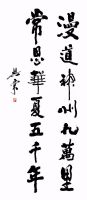 漫道神州九萬里
常思華夏五千年